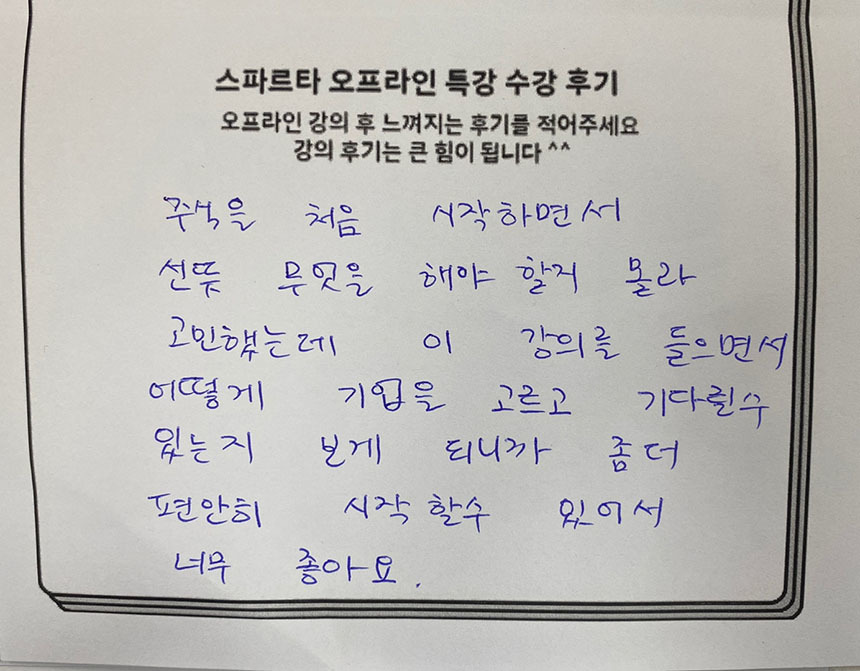 스파르타 오프라인 특강 수강 후기
오프라인 강의 후 느껴지는 후기를 적어주세요
강의 후기는 큰 힘이 됩니다 ^^
주식을 처음 시작하면서
선뜻 무엇을 해야 할지 몰라
고민했는데 이 강의를 들으면서
어떻게 기업을 고르고 기다릴수
있는지 보게 되니까 좀더
편안히 시작 할수 있어서
너무 좋아요.